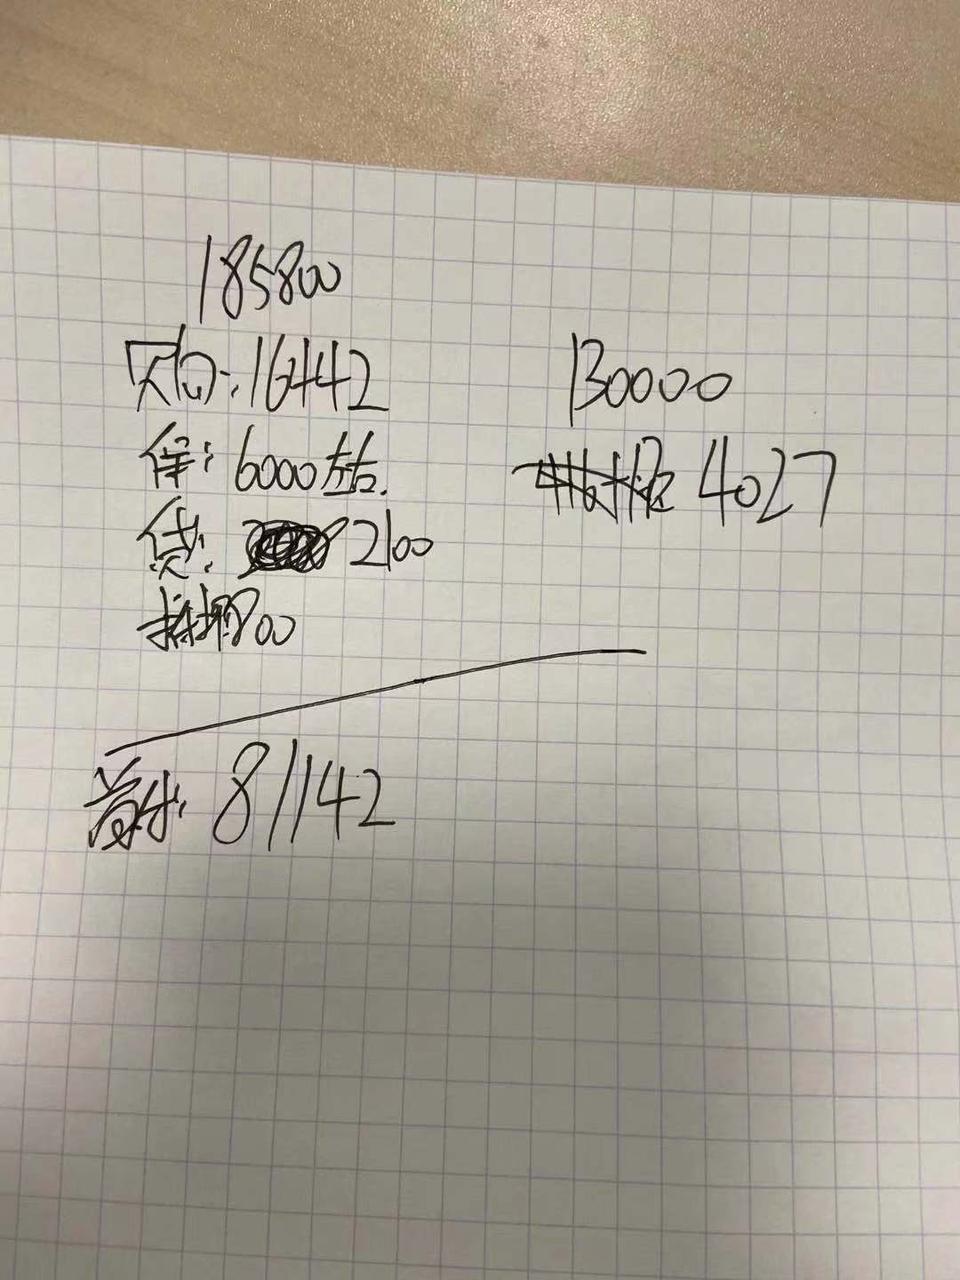 185800
购:16442
保:6000左右.
贷:2100
挂牌800
首付:81142
130000
4027